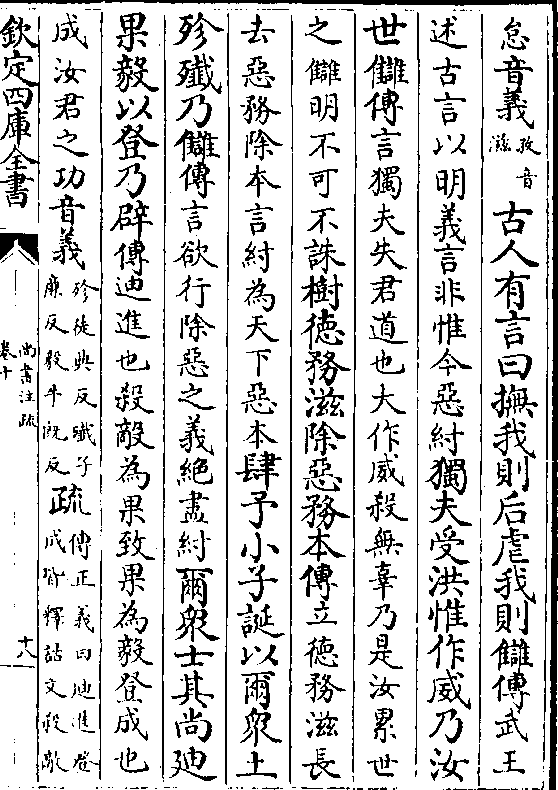 怠音義孜音滋古人有言曰撫我則后虐我則讎傳武王
述古言以明義言非惟今惡紂獨夫受洪惟作威乃汝
世讎傳言獨夫失君道也大作威殺無辜乃是汝累世
之讎明不可不誅樹德務滋除惡務本傳立德務滋長
去惡務除本言紂為天下惡本肆予小子誕以爾衆士
殄殲乃讎傳言欲行除惡之義絶盡紂爾衆士其尚廸
果毅以登乃辟傳迪進也殺敵為果致果為毅登成也
成汝君之功音義殄徒典反殲子廉反毅牛既反疏傳正義曰迪進登成皆釋詁文殺敵
欽定四庫全書
尚書注疏
卷十
十八